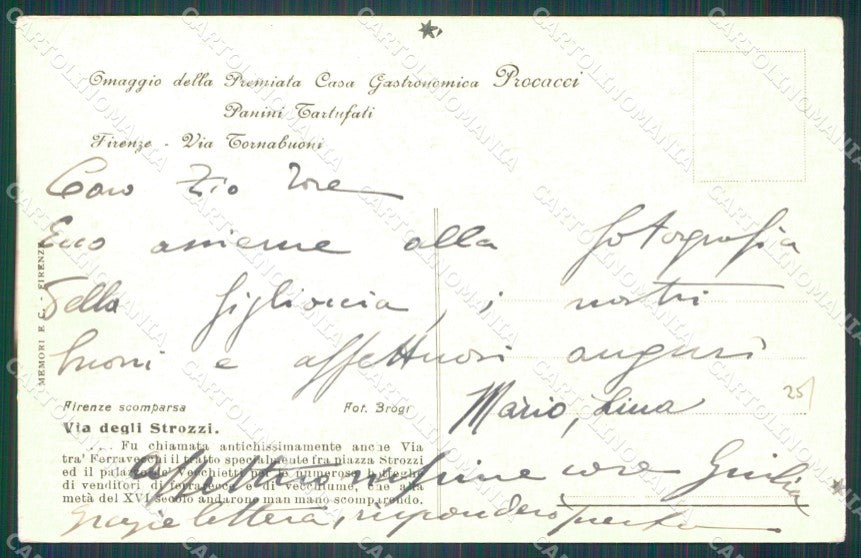 Omaggio della Premiata Casa Gastronomica Procacci
Panini Tartufati
Firenze - Via Tornabuoni
Caro Zio
Ecco assieme alla fotografia
della figlioccia, i nostri
buoni e affettuosi auguri
Mario, Lina
MEMORI E C. - FIRENZE
Firenze scomparsa
Fot. Brogi
Via degli Strozzi.
.... Fu chiamata antichissimamente anche Via
tra' Ferravecchi il tratto specialmente fra piazza Strozzi
ed il palazzo de' Vecchietti per le numerose botteghe
di venditori di ferravecchi e di vecchiume, che alla
metà del XVI secolo andarono man mano scomparendo.
cose Giulia
Grazie lettera, risponderò presto
25
CARTOLINOMANIA